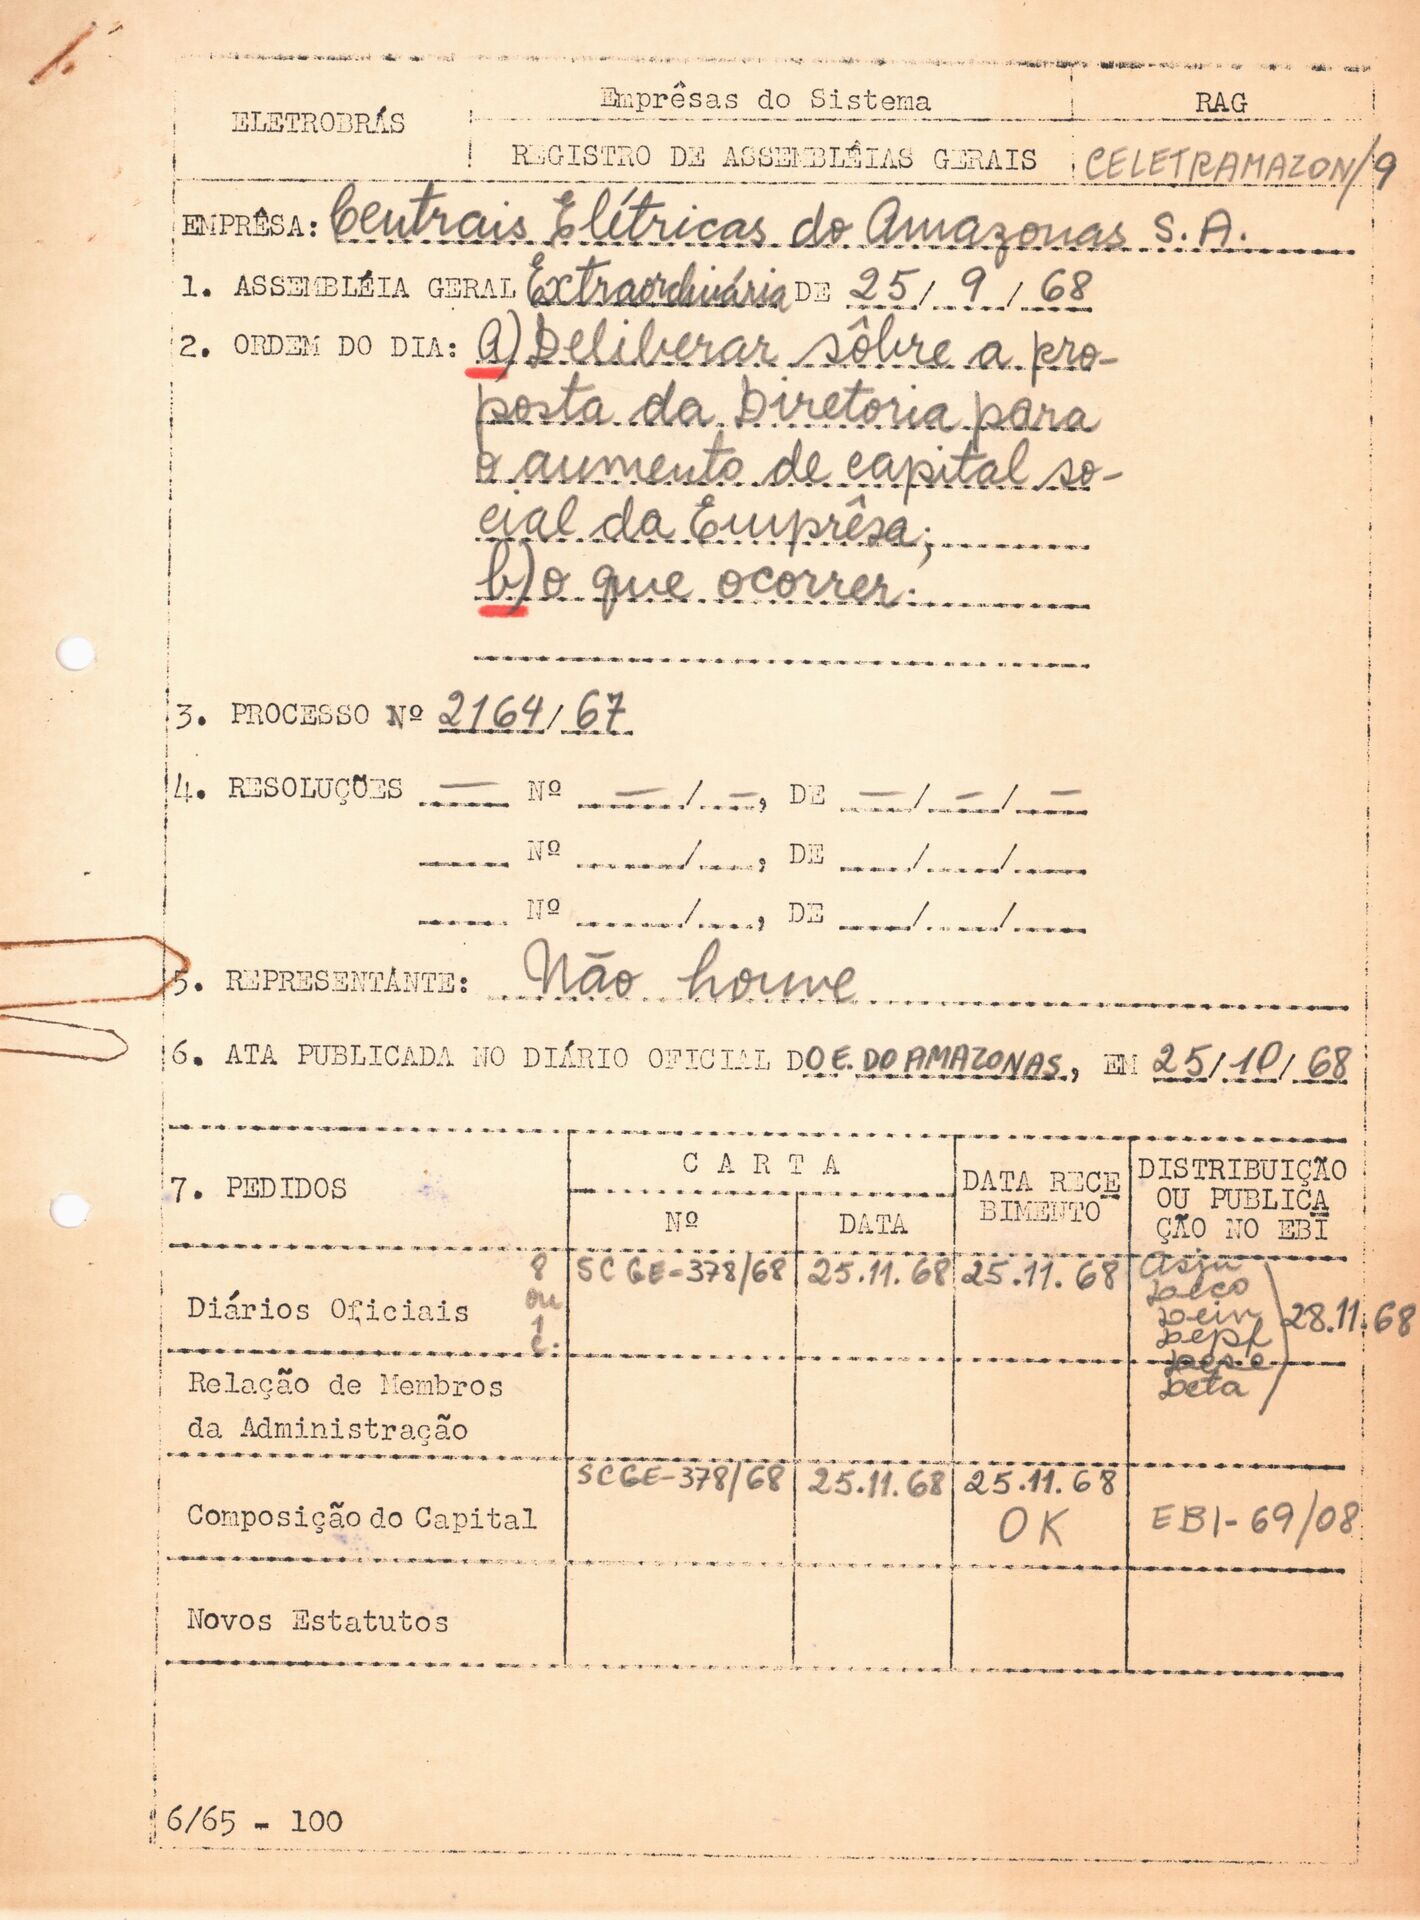 ELETROBRÁS
Emprêsas do Sistema
RAG
REGISTRO DE ASSEMBLÉIAS GERAIS
CELETRAMAZON/9
EMPRÊSA: Centrais Elétricas do Amazonas S.A.
1. ASSEMBLÉIA GERAL Extraordinária DE 25/9/68
2. ORDEM DO DIA: a) Deliberar sôbre a pro-
posta da Diretoria para
o aumento de capital so-
cial da Emprêsa;
b) o que ocorrer.
3. PROCESSO Nº 2164/67
4. RESOLUÇÕES — Nº —/—, DE —/—/—
Nº /, DE / /
Nº /, DE / /
5. REPRESENTANTE: Não houve
6. ATA PUBLICADA NO DIÁRIO OFICIAL DO E. DO AMAZONAS, EM 25/10/68
7. PEDIDOS
CARTA
Nº
DATA
DATA RECE
BIMENTO
DISTRIBUIÇÃO
OU PUBLICA
ÇÃO NO EBI
Diários Oficiais
8
ou
1
SCGE-378/68 25.11.68 25.11.68
Asju
Deco
Dein
Depf
Deta
28.11.68
Relação de Membros
da Administração
Composição do Capital
SCGE-378/68 25.11.68 25.11.68
OK
EBI-69/08
Novos Estatutos
6/65 - 100